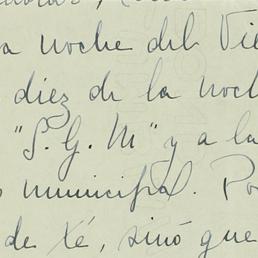 a noche del Vie
diez de la noch
"S. G. M" y a la
municipal. Po
de Xé, sinó que